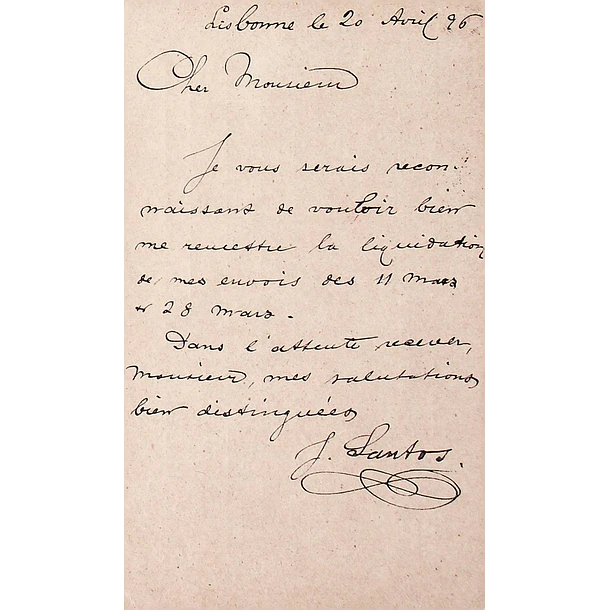 Lisbonne le 20 Avril 96
Cher Monsieur
Je vous serais recon-
naissant de vouloir bien
me remettre la liquidation
de mes envois des 11 Mars
& 28 mars.
Dans l'attente recevez,
Monsieur, mes salutations
bien distinguées
J. Santos.